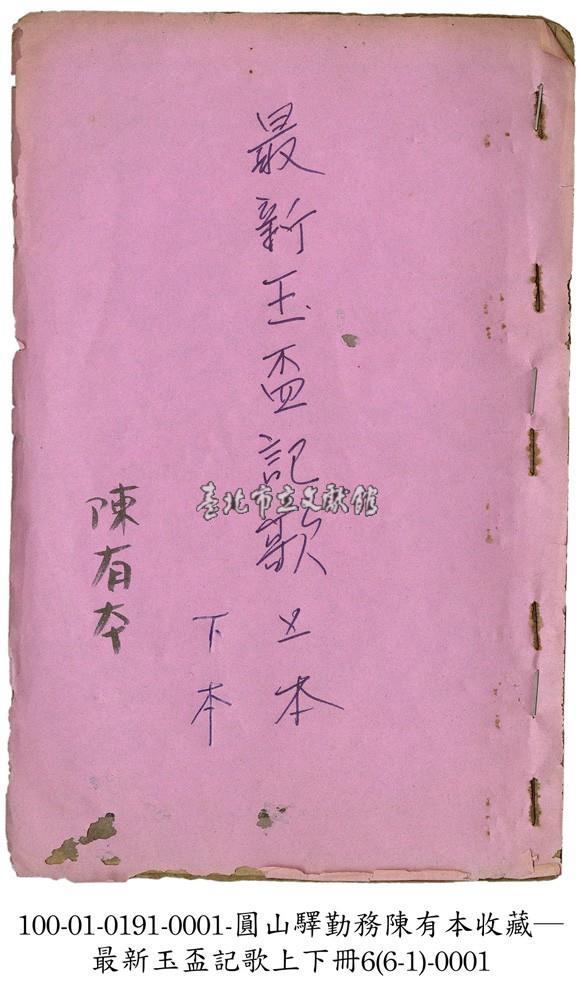 最新玉盃記歌 上本
下本
陳有本
臺北市立文獻館
100-01-0191-0001-圓山驛勤務陳有本收藏—
最新玉盃記歌上下冊6(6-1)-0001